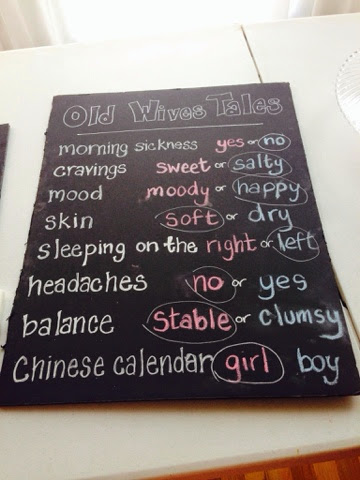 Old Wives Tales
morning sickness yes or no
cravings sweet or salty
mood moody or happy
skin soft or dry
sleeping on the right or left
headaches no or yes
balance Stable or clumsy
Chinese calendar girl boy